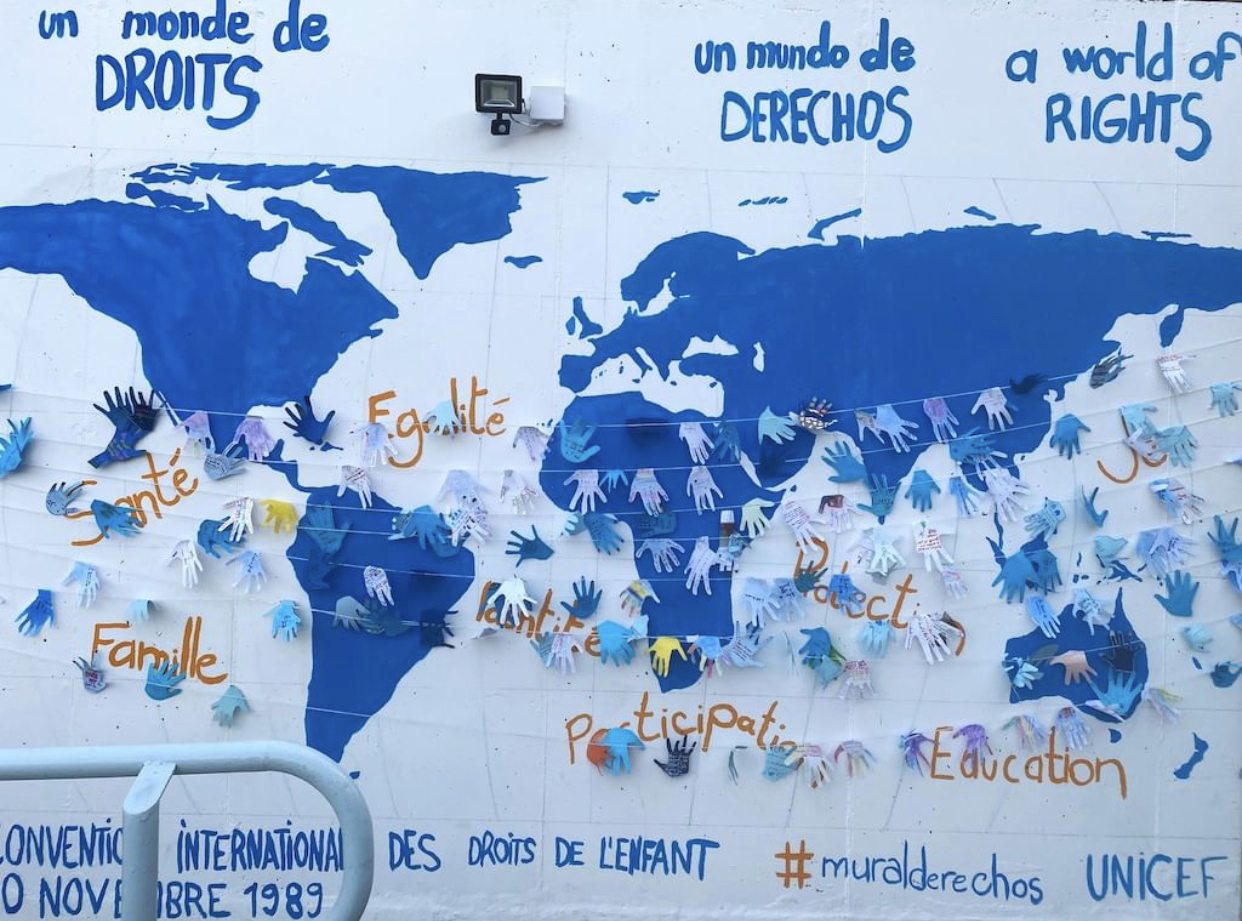 un monde de
DROITS
un mundo de
DERECHOS
a world of
RIGHTS
Egalité
Santé
Identité
Famille
Participatio
Education
CONVENTIO INTERNATIONAL DES DROITS DE L'ENFANT
0 NOVEMBRE 1989
#muralderechos UNICEF